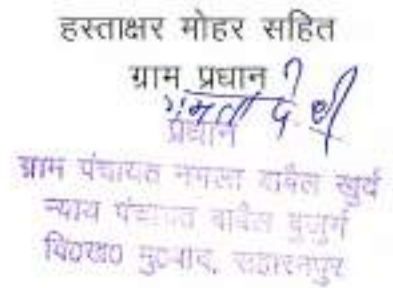 हस्ताक्षर मोहर सहित
ग्राम प्रधान
प्रधान
ग्राम पंचायत नगला बाबैल खुर्द
न्याय पंचायत बाबैल बुजुर्ग
वि०ख० सहारनपुर